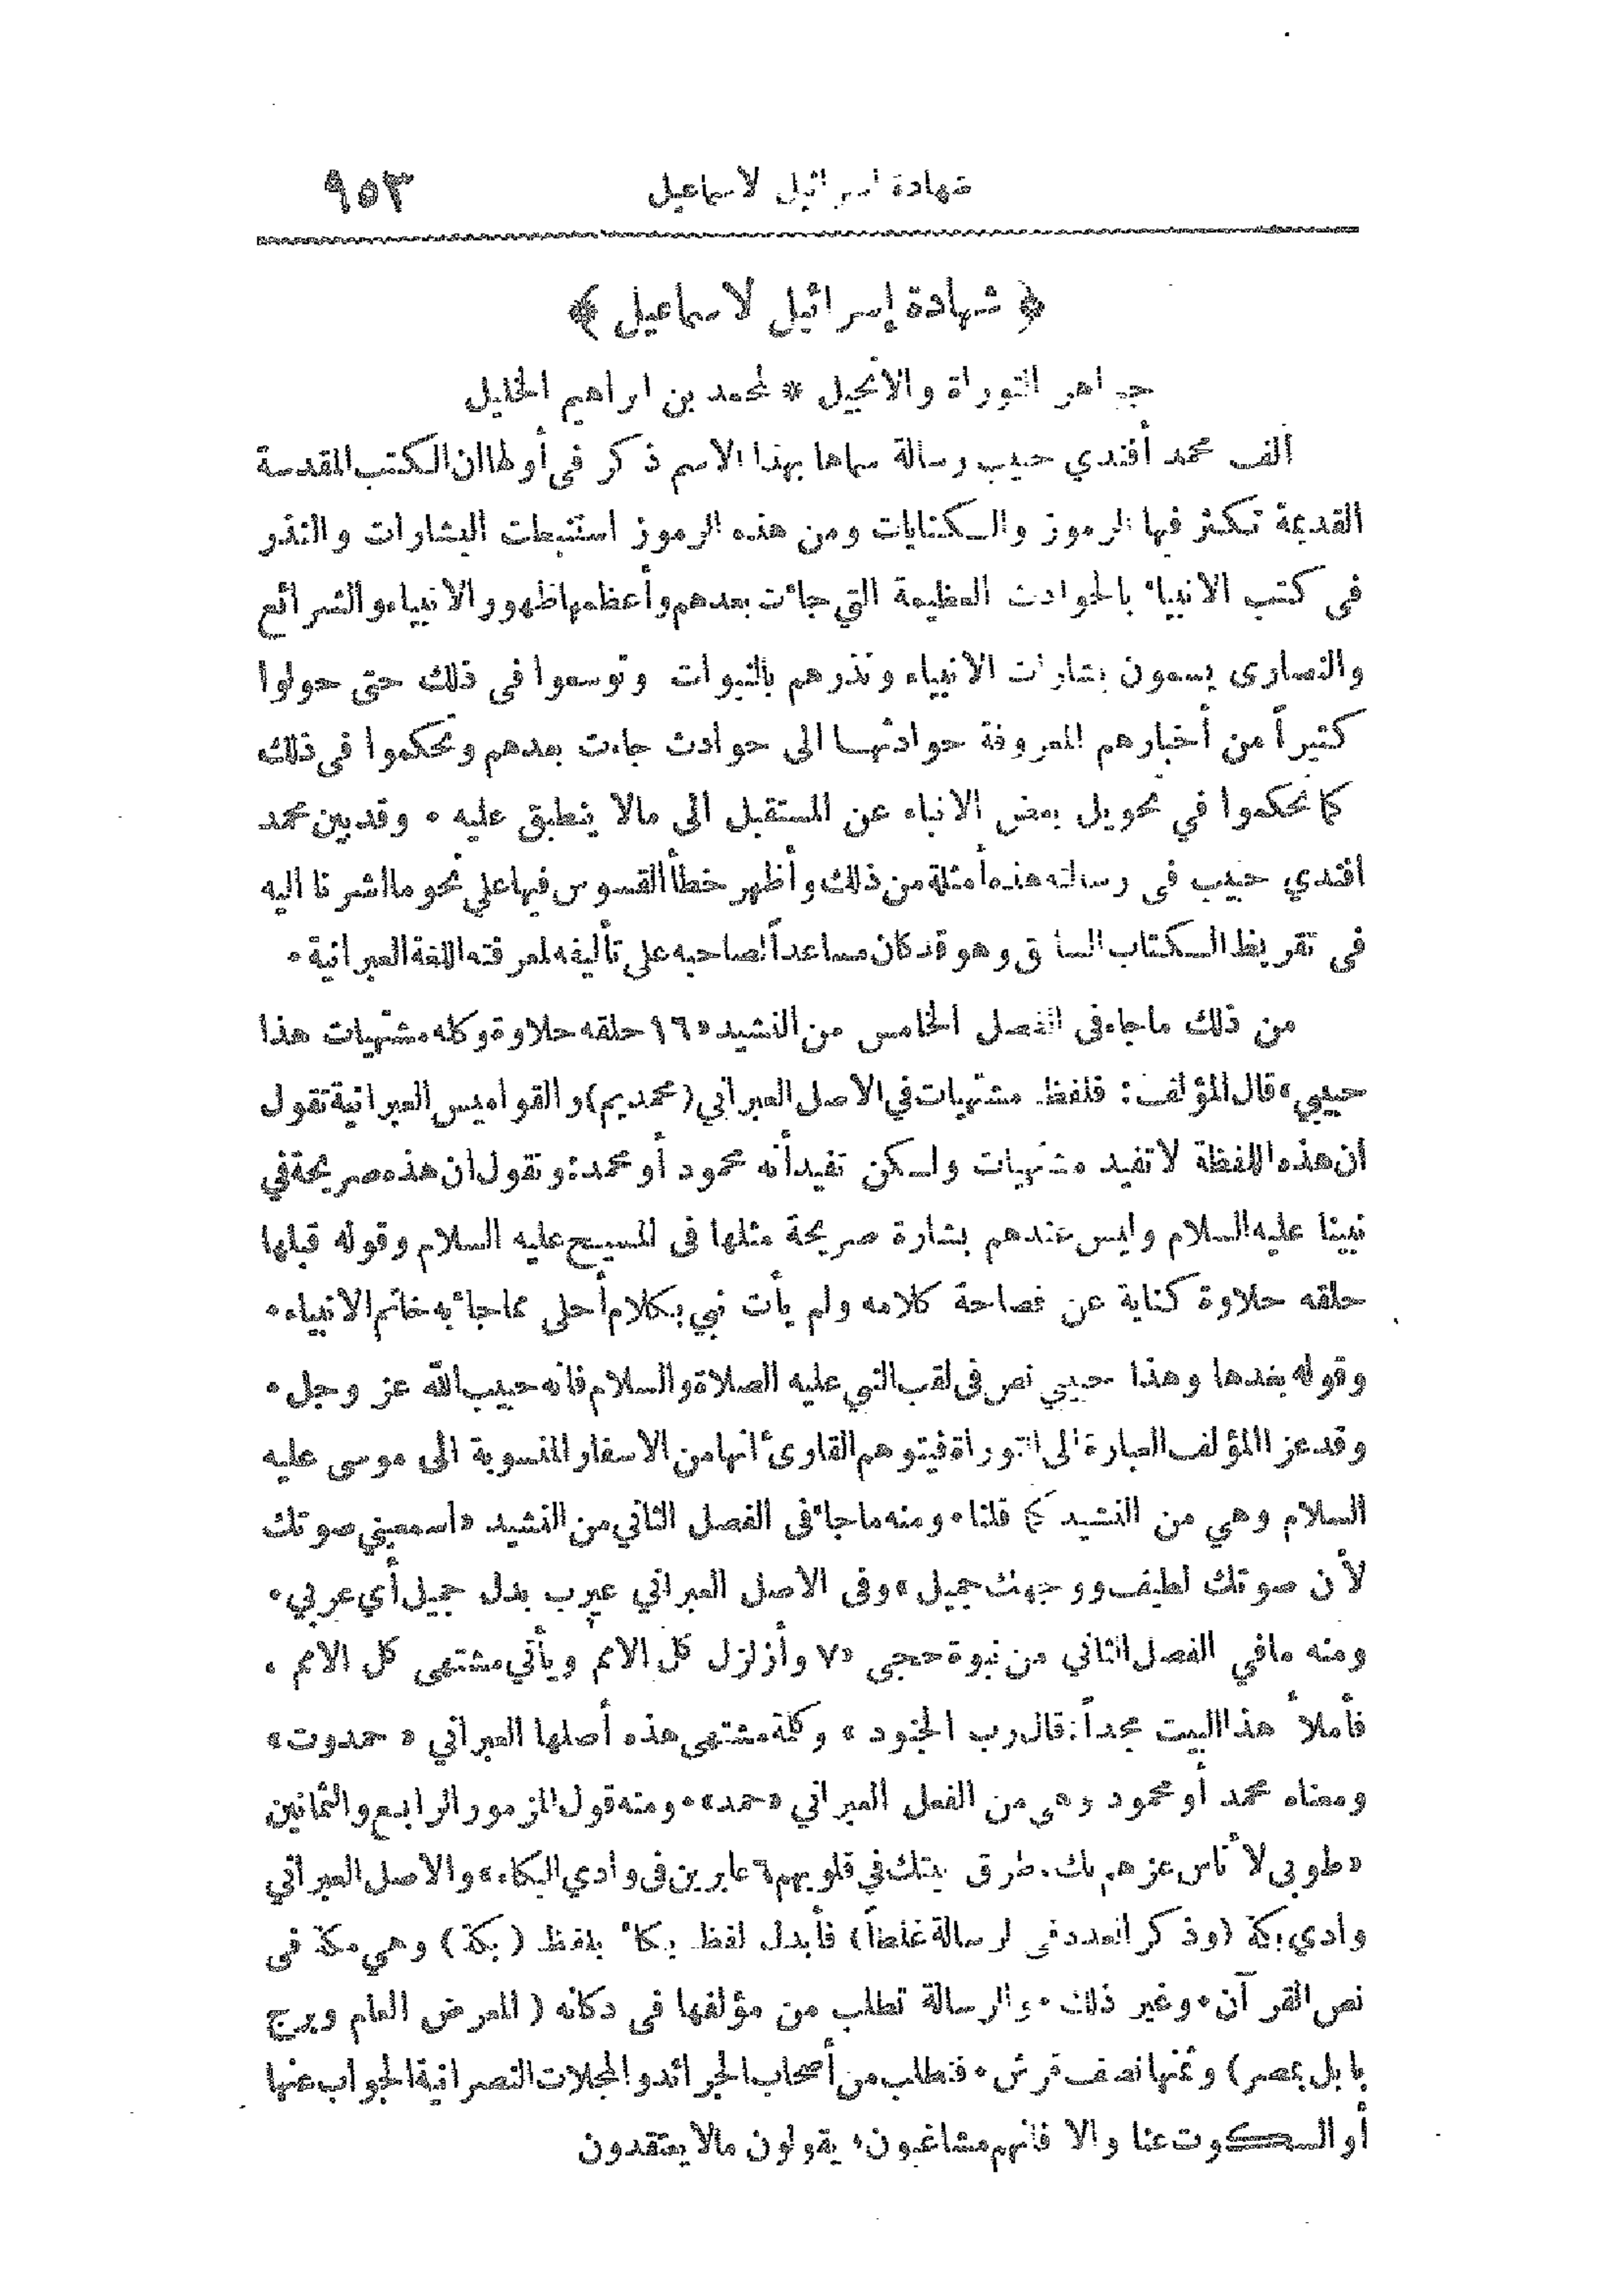 شهادة اسرائيل لاسماعيل ٩٥٣
﴿ شهادة إسرائيل لاسماعيل ﴾
جواهر التوراة والانجيل * لمحمد بن ابراهيم الخليل
ألف محمد أفندي حبيب رسالة سماها بهذا الاسم ذكر فى أولها ان الكتب المقدسة
القديمة تكثر فيها الرموز والكنايات ومن هذه الرموز استنبطت البشارات والنذر
فى كتب الانبياء بالحوادث العظيمة التي جاءت بعدهم وأعظمها ظهور الانبياء والشرائع
والنصارى يسمون بشارات الانبياء ونذرهم بالنبوات وتوسعوا فى ذلك حتى حولوا
كثيراً من أخبارهم المعروفة حوادثها الى حوادث جاءت بعدهم وتحكموا فى ذلك
كما تحكموا في تحويل بعض الانباء عن المستقبل الى مالا ينطبق عليه ٠ وقد بين محمد
افندي حبيب فى رسالته هذه أمثلة من ذلك وأظهر خطأ القسوس فيها على نحو ما اشرنا اليه
فى تقريظ الكتاب السابق وهو قد كان مساعداً لصاحبه على تأليفه لمعرفته اللغة العبرانية ٠
من ذلك ماجاء فى الفصل الخامس من النشيد «١٦ حلقه حلاوة وكله مشتهيات هذا
حبيبي» قال المؤلف: فلفظ مشتهيات في الاصل العبراني (محمديم) والقواميس العبرانية تقول
ان هذه اللفظة لا تفيد مشتهيات ولكن تفيد أنه محمود أو محمد: ونقول ان هذه صريحة في
نبينا عليه السلام وليس عندهم بشارة صريحة مثلها فى المسيح عليه السلام وقوله قبلها
حلقه حلاوة كناية عن فصاحة كلامه ولم يأت نبي بكلام أحلى مما جاء به خاتم الانبياء ٠
وقوله بعدها وهذا حبيبي نص فى لقب النبي عليه الصلاة والسلام فانه حبيب الله عز وجل ٠
وقد عزا المؤلف العبارة الى التوراة فيتوهم القارئ انها من الاسفار المنسوبة الى موسى عليه
السلام وهي من النشيد كما قلنا ٠ ومنه ماجاء فى الفصل الثاني من النشيد «اسمعيني صوتك
لأن صوتك لطيف ووجهك جميل» وفى الاصل العبراني عيرب بدل جميل أي عربي ٠
ومنه مافي الفصل الثاني من نبوة حجى «٧ وأزلزل كل الامم ويأتي مشتهى كل الامم ،
فأملأ هذا البيت مجداً: قال رب الجنود » وكلمة مشتهى هذه أصلها العبراني « حمدوت»
ومعناه محمد أو محمود وهي من الفعل العبراني «حمد» ٠ ومنه قول المزمور الرابع والثمانين
«طوبى لأناس عزهم بك. طرق بيتك في قلوبهم ٦ عابرين فى وادي البكاء» والاصل العبراني
وادي بكة (وذكر العدد فى الرسالة غلطاً) فأبدل لفظ بكاء بلفظ (بكة) وهي مكة فى
نص القرآن ٠ وغير ذلك ٠ والرسالة تطلب من مؤلفها فى دكانه ( المعرض العام وبرج
بابل بمصر) وثمنها نصف قرش ٠ فنطلب من أصحاب الجرائد والمجلات النصرانية الجواب عنها
أو السكوت عنا والا فانهم مشاغبون، يقولون مالا يعتقدون